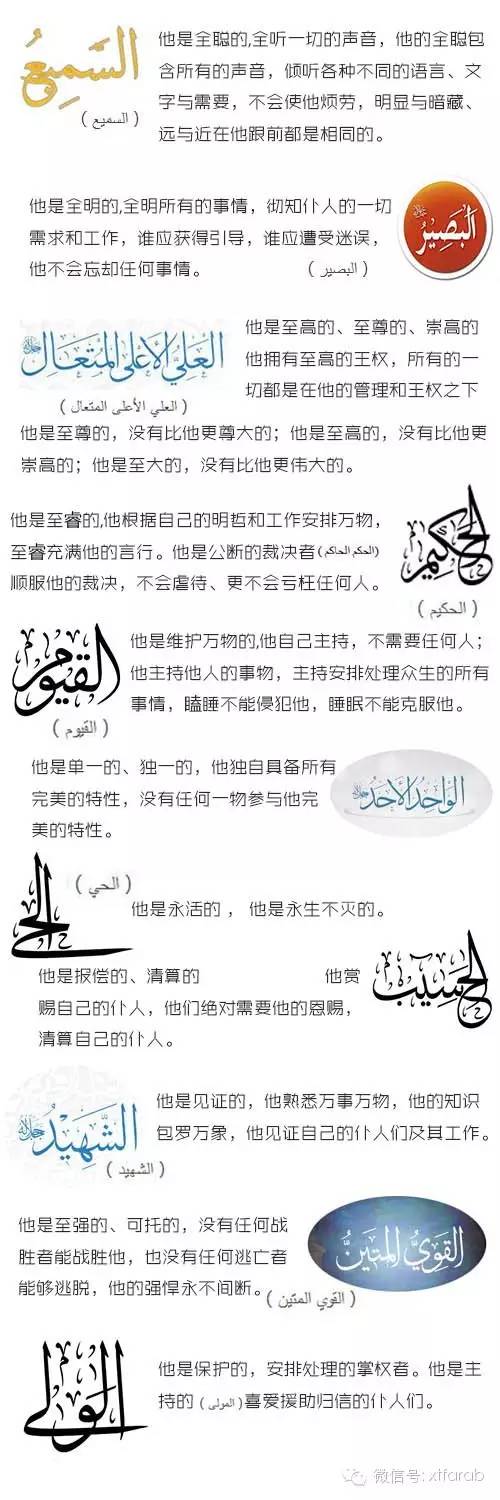 السَّمِيعُ
他是全聪的,全听一切的声音，他的全聪包
含所有的声音，倾听各种不同的语言、文
字与需要，不会使他烦劳，明显与暗藏、
远与近在他跟前都是相同的。
( السميع )
他是全明的,全明所有的事情，彻知仆人的一切
需求和工作，谁应获得引导，谁应遭受迷误，
他不会忘却任何事情。
( البصير )
البَصِيْرُ
العَلِيُّ الأعلى المُتَعَالُ
他是至高的、至尊的、崇高的
他拥有至高的王权，所有的一
切都是在他的管理和王权之下
( العلي الأعلى المتعال )
他是至尊的，没有比他更尊大的；他是至高的，没有比他更
崇高的；他是至大的，没有比他更伟大的。
他是至睿的,他根据自己的明哲和工作安排万物，
至睿充满他的言行。他是公断的裁决者(الحكم الحاكم)
顺服他的裁决，不会虐待、更不会亏枉任何人。
الحكيم
( الحكيم )
القيوم
他是维护万物的,他自己主持，不需要任何人；
他主持他人的事物，主持安排处理众生的所有
事情，瞌睡不能侵犯他，睡眠不能克服他。
( القيوم )
他是单一的、独一的，他独自具备所有
完美的特性，没有任何一物参与他完
美的特性。
الوَاحِدُ الأَحَدُ
الحي
( الحي )
他是永活的 ， 他是永生不灭的。
他是报偿的、清算的 他赏
赐自己的仆人，他们绝对需要他的恩赐，
清算自己的仆人。
الحَسِيبُ
الشَّهِيْدُ
他是见证的，他熟悉万事万物，他的知识
包罗万象，他见证自己的仆人们及其工作。
( الشهيد )
他是至强的、可托的，没有任何战
胜者能战胜他，也没有任何逃亡者
能够逃脱，他的强悍永不间断。
( القوي المتين )
القَوِيُّ المَتِينُ
الولي
他是保护的，安排处理的掌权者。他是主
持的 ( المولى ) 喜爱援助归信的仆人们。
微信号: xtfarab